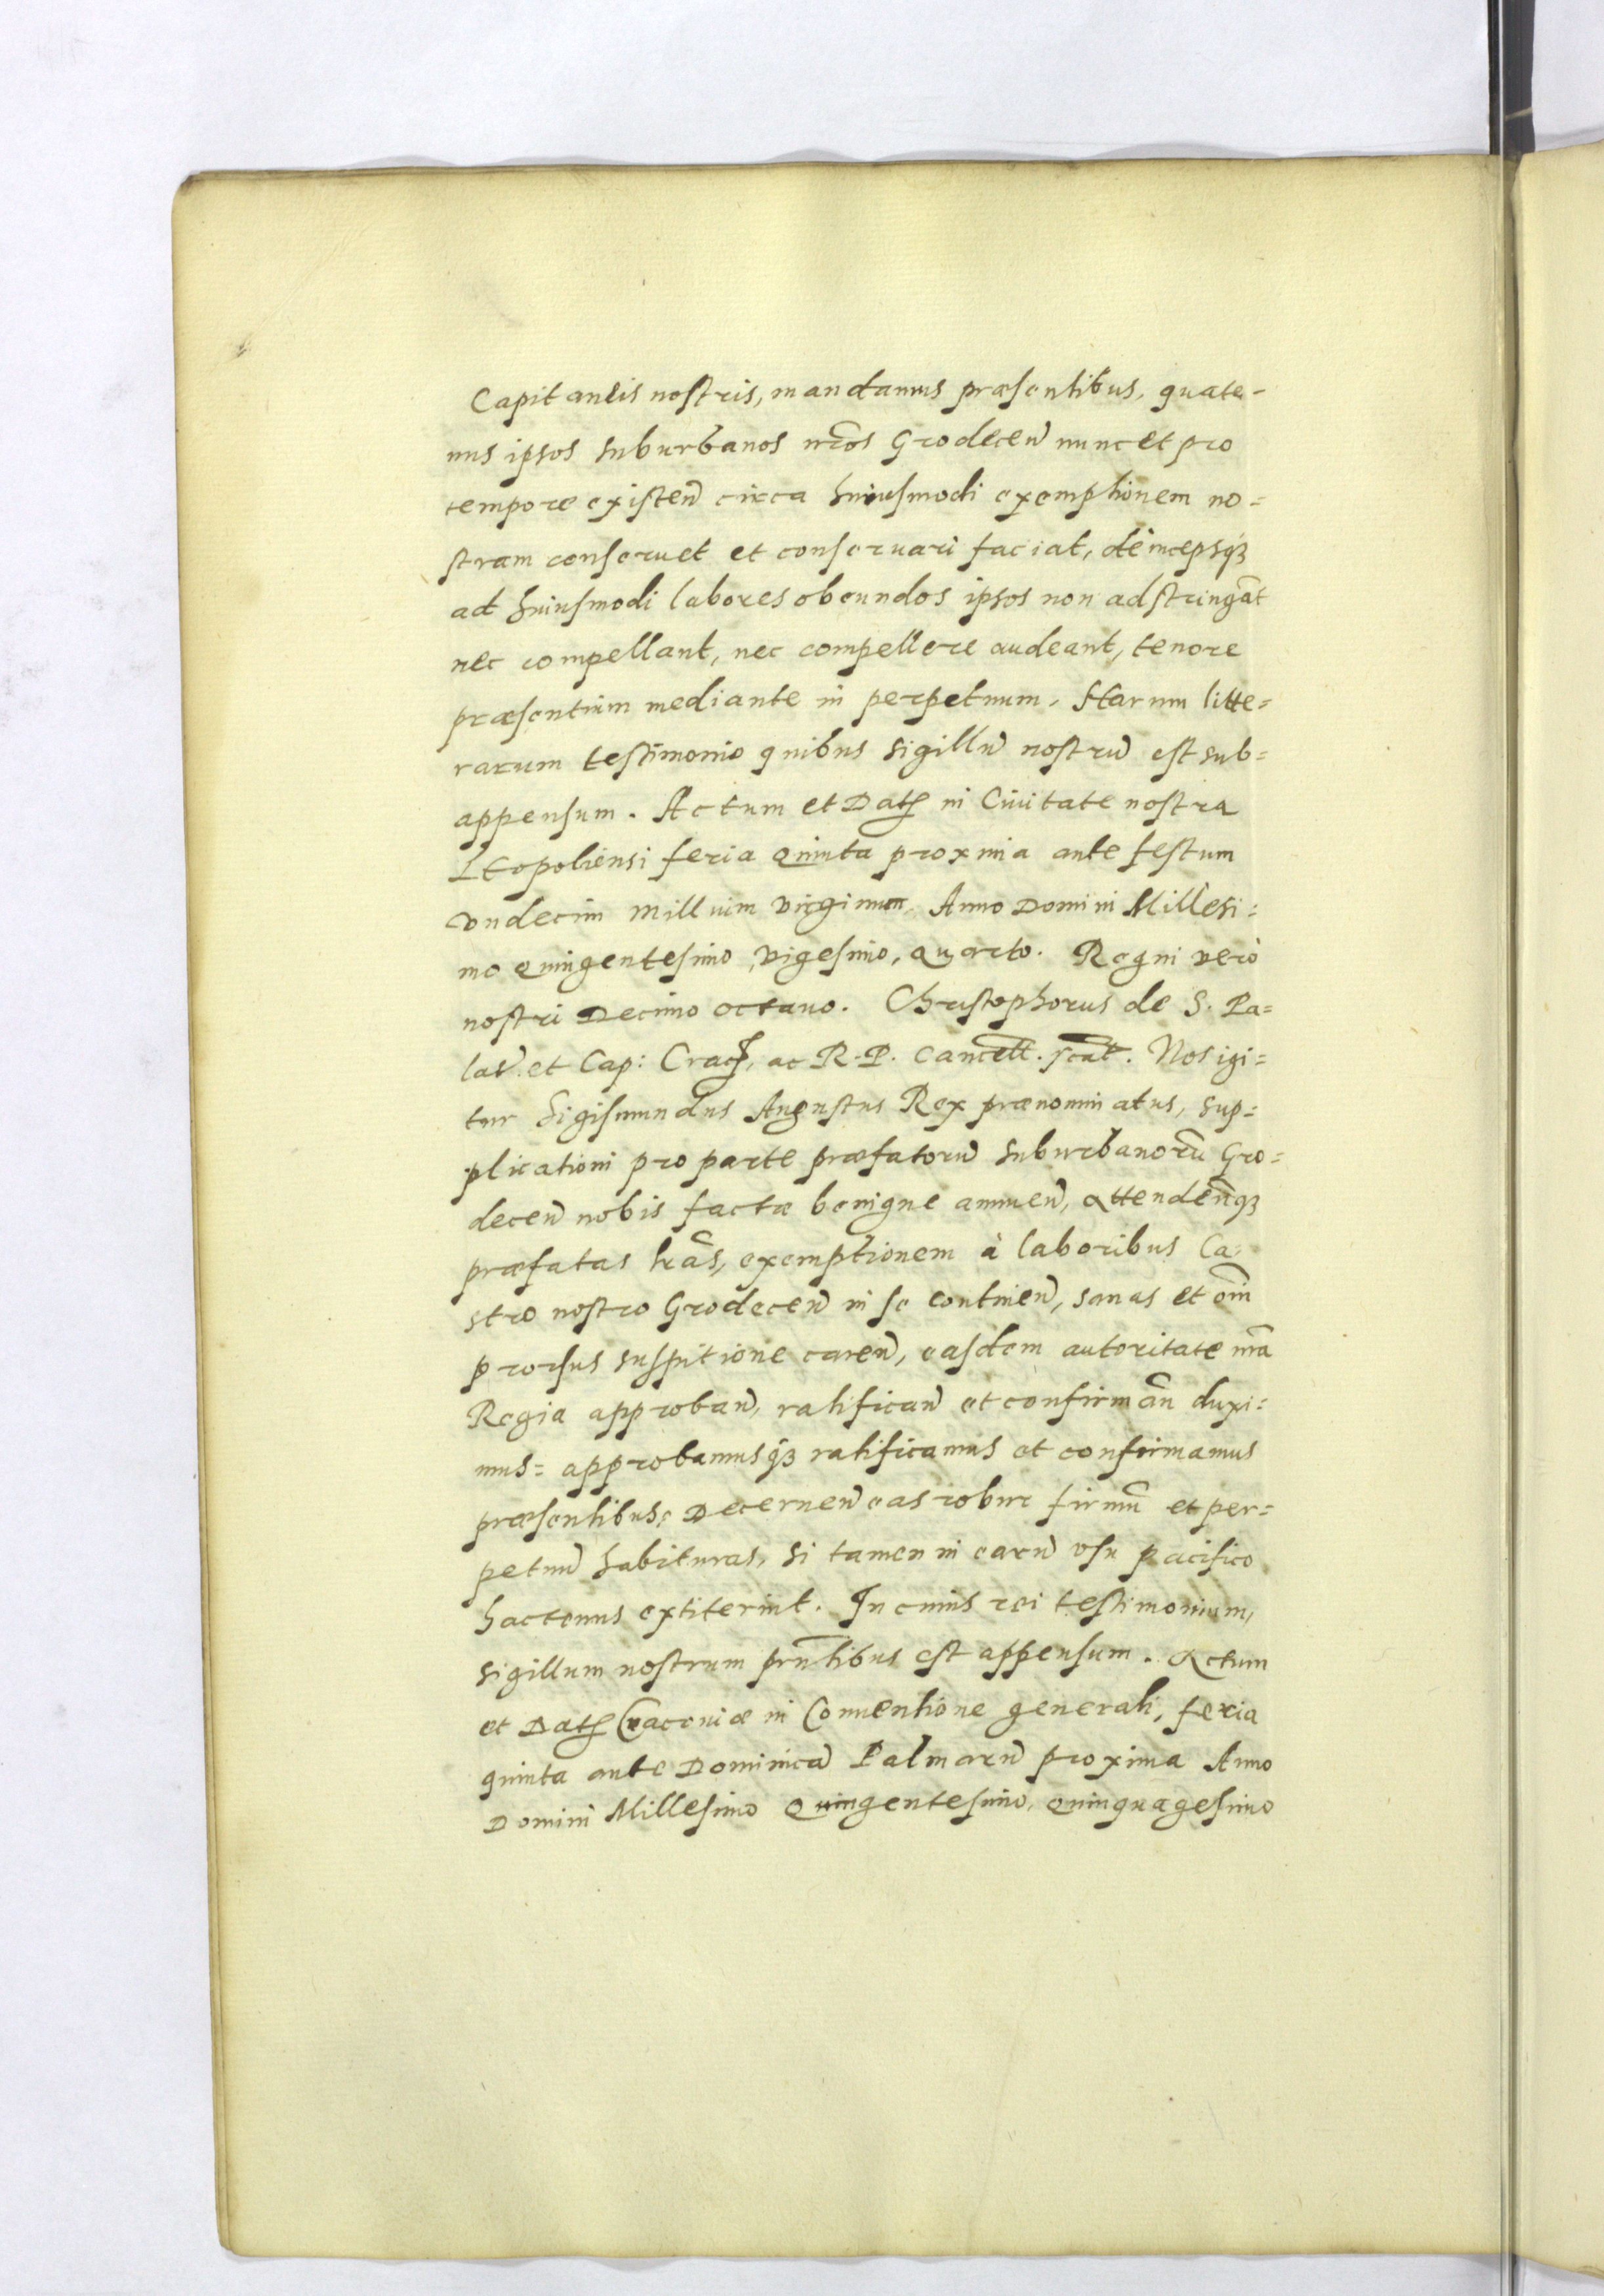 Capitaneis nostris, mandamus præsentibus, quate-
nus ipsos suburbanos nr̃os Grodeceñ nunc et pro
tempore existeñ circa huiusmodi exemptionem no=
stram conseruet et conseruari faciat, deincepsq́ʒ
ad huiusmodi labores obeundos ipsos non adstringãt
nec compellant, nec compellere audeant, tenore
præsentium mediante in perpetuum. Harum litte=
rarum testimonio quibus sigillũ nostrũ est sub=
appensum. Actum et Datȩ in Ciuitate nostra
Leopoliensi feria Quinta proxima ante festum
vndecim millium virginum, Anno Domini Millesi=
mo Quingentesimo, vigesimo, Quarto. Regni verò
nostri Decimo octauo. Christophorus de S. Pa=
lat̃. et Cap: Cracȩ, ac R. P. Cancell̃. scãt. Nos igi=
tur Sigismundus Augustus Rex prænominatus, sup=
plicationi pro parte præfatorũ suburbanorũ Gro=
deceñ nobis factæ benigne annueñ, attendeñq́ʒ
præfatas lrãs, exemptionem à laboribus Ca=
stro nostro Grodeceñ in se contineñ, sanas et om̃i
prorsus suspitione careñ, easdem autoritate nr̃a
Regia approbañ, ratificañ et confirmañ duxi=
mus= approbamusq́ʒ ratificamus et confirmamus
præsentibus, Decerneñ eas robur firmũ et per=
petuũ habituras, si tamen in earũ vsu pacifico
hactenus extiterint. In cuius rei testimonium,
sigillum nostrum prñtibus est appensum. Actum
et Datȩ Cracouiæ in Conuentione generali, feria
quinta ante Dominicã Palmarũ proxima Anno
Domini Millesimo Quingentesimo, quinquagesimo